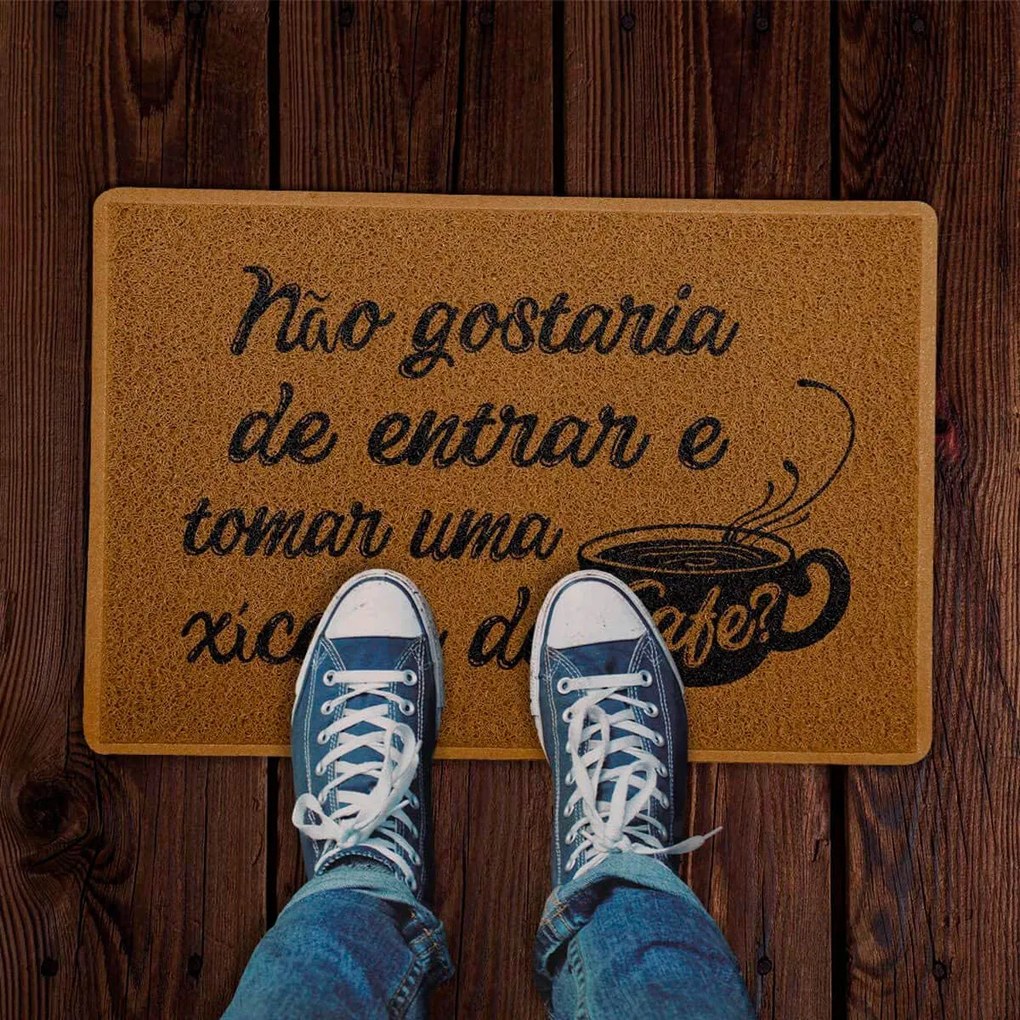 Não gostaria
de entrar e
tomar uma
Cafe?